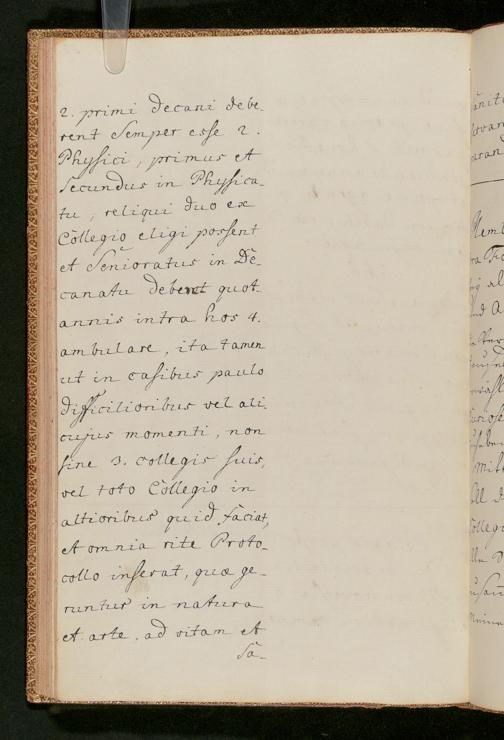 2. primi Decani debe-
rent Semper esse 2.
Physici, primus et
Secundus in Physica-
tu, reliqui duo ex
Collegio eligi possent
et Senioratus in De-
canatu deberet quot-
annis intra hos 4.
ambulare, ita tamen
ut in casibus paulo
difficilioribus vel ali-
cujus momenti, non
sine 3. collegis suis,
vel toto Collegio in
altioribus quid faciat,
et omnia rite Proto-
collo inserat, quæ ge-
runtur in natura
et arte, ad vitam et
Sa-